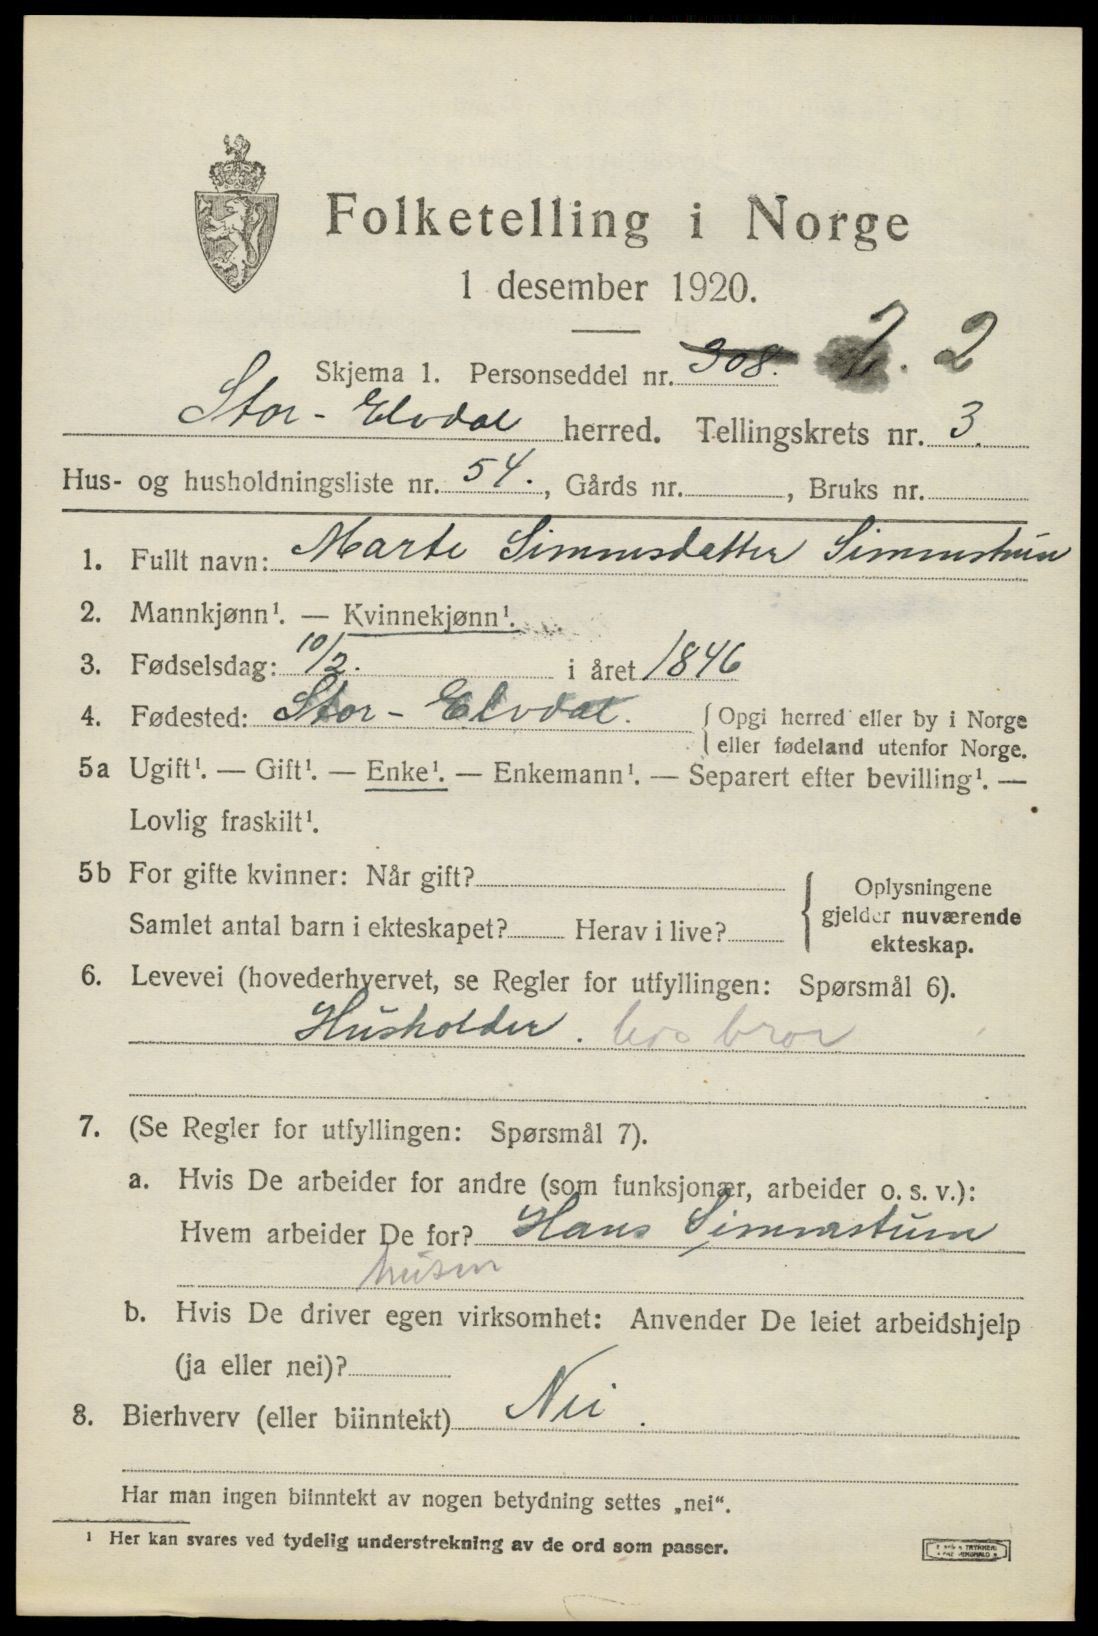 Folketelling i Norge
1 desember 1920.
Skjema 1. Personseddel nr. 308. 2. 2
Stor-Elvdal herred. Tellingskrets nr. 3.
Hus- og husholdningsliste nr. 54., Gårds nr. , Bruks nr.
1. Fullt navn: Marte Simensdatter
2. Mannkjønn¹. — Kvinnekjønn¹.
3. Fødselsdag: 10/2. i året 1846
4. Fødested: Stor-Elvdal. { Opgi herred eller by i Norge
eller fødeland utenfor Norge.
5a Ugift¹. — Gift¹. — Enke¹. — Enkemann¹. — Separert efter bevilling¹. —
Lovlig fraskilt¹.
5b For gifte kvinner: Når gift? { Oplysningene
gjelder nuværende
ekteskap.
Samlet antal barn i ekteskapet? Herav i live?
6. Levevei (hovederhvervet, se Regler for utfyllingen: Spørsmål 6).
Husholder. hos bror
7. (Se Regler for utfyllingen: Spørsmål 7).
a. Hvis De arbeider for andre (som funksjonær, arbeider o. s. v.):
Hvem arbeider De for? Hans
b. Hvis De driver egen virksomhet: Anvender De leiet arbeidshjelp
(ja eller nei)?
8. Bierhverv (eller biinntekt) Nei.
Har man ingen biinntekt av nogen betydning settes „nei“.
¹ Her kan svares ved tydelig understrekning av de ord som passer.